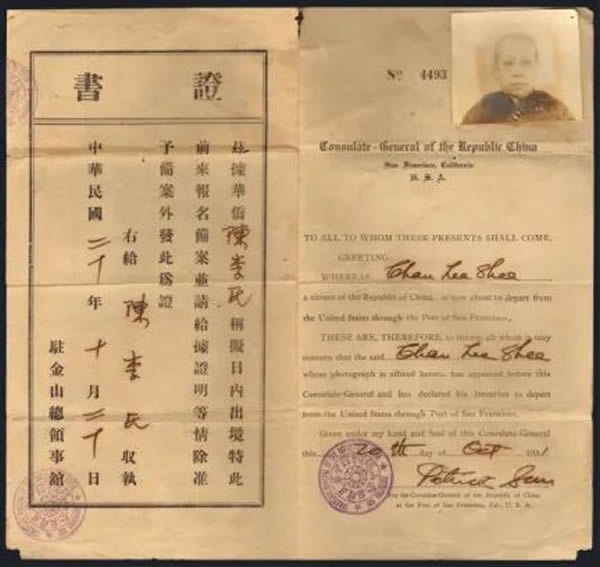 證書
茲據華僑陳李氏稱擬日內出境特此
前來報名備案並請給據證明等情除准
予備案外發此爲證
右給 陳李氏 收執
中華民國二十年十月二十日
駐金山總領事館
Nº 4493
Consulate-General of the Republic China
San Francisco, California
TO ALL TO WHOM THESE PRESENTS SHALL COME,
GREETING:
WHEREAS, Chan Lee Shee
a citizen of the Republic of China, is now about to depart from
the United States through the Port of San Francisco,
THESE ARE, THEREFORE, to inform all whom it may
concern that the said Chan Lee Shee
whose photograph is affixed hereto, has appeared before this
Consulate-General and has declared his intention to depart
from the United States through Port of San Francisco.
Given under my hand and Seal of this Consulate-General
this 20th day of Oct 1931
Patrick Sun
For the Consulate-General of the Republic of China
at the Port of San Francisco, Cal., U. S. A.